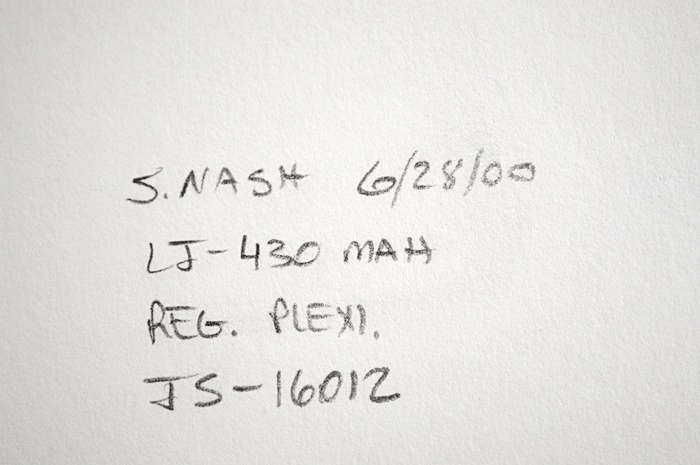 S. NASH 6/28/00
LJ-430 MAH
REG. PLEXI.
JS-16012